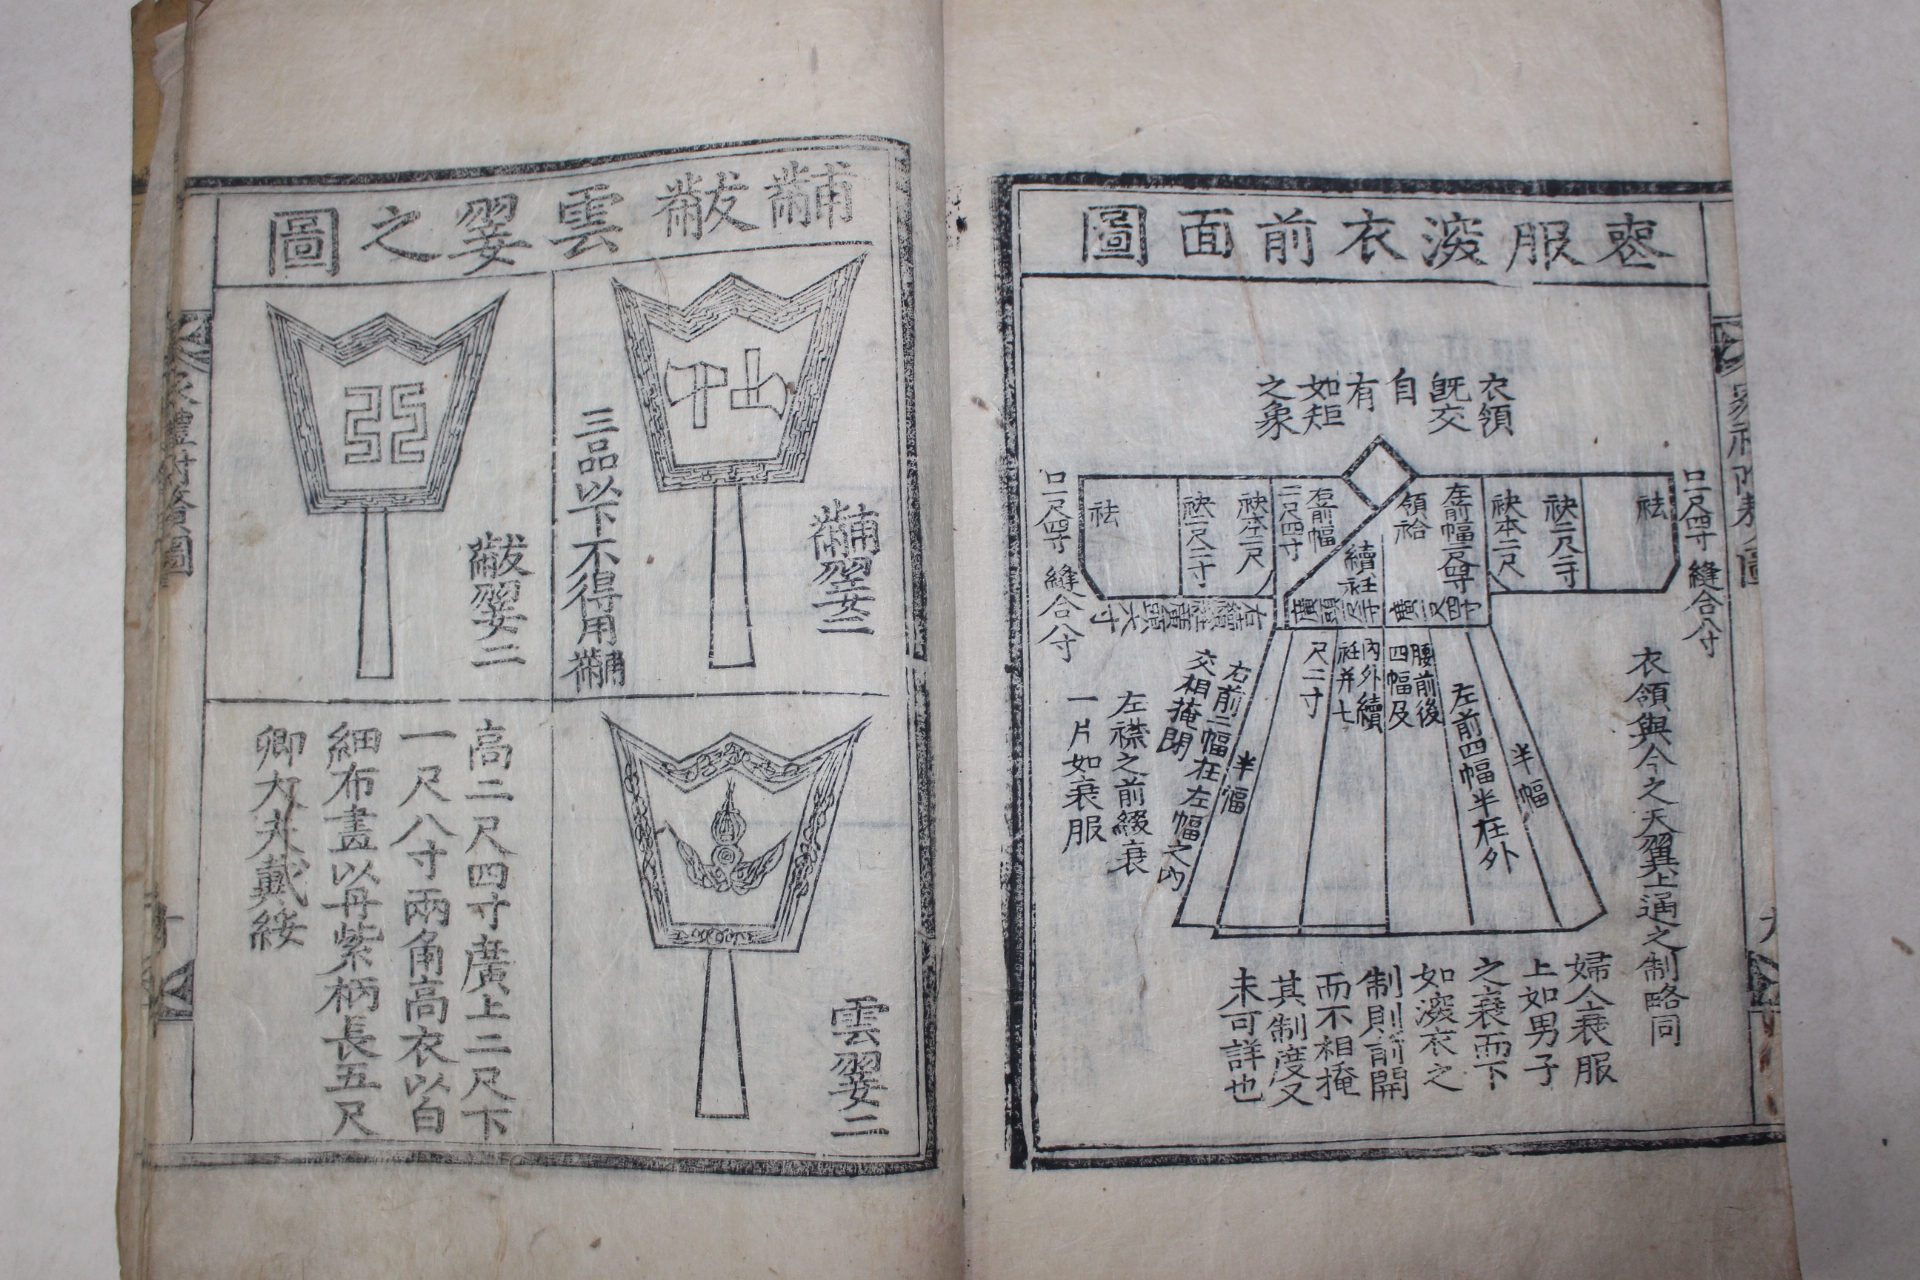 喪服深衣前面圖
衣領
既交
自
有
如矩
之象
口一尺二寸
縫合六寸
袪
袂二尺二寸
袂本二尺
左前幅二尺二寸
領袷
續衽
右前幅
二尺四寸
袂本二尺
袂二尺二寸
袪
口一尺二寸
縫合六寸
腰前後
四幅及
內外續
衽并七
尺二寸
半幅
左前四幅半在外
半幅
右前二幅在左幅之內
交相掩閉
左襟之前綴衰
一片如衰服
衣領與今之天翼上通之制略同
婦人衰服
上如男子
之衰而下
如深衣之
制則前開
而不相掩
其制度又
未可詳也
黼黻雲翣之圖
黼翣二
三品以下不得用黼
黻翣二
雲翣二
高二尺四寸廣上二尺下
一尺八寸兩角高衣以白
細布畫以丹紫柄長五尺
卿大夫戴綏
家禮附贅 圖
十